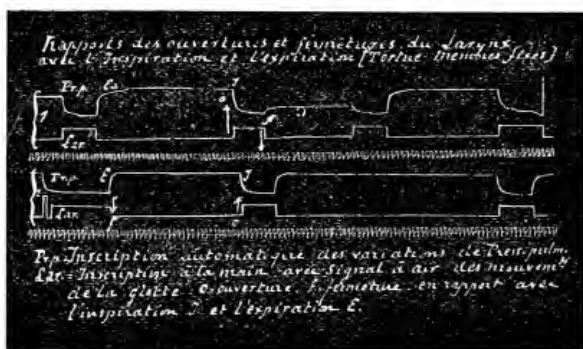 Rapports des ouvertures et fermetures du Larynx
avec l'Inspiration et l'expiration [Tortue membres fixes]
Pr.p. E
I
Lar.
Pr.p. E I
Lar.
Pr.p. Inscription automatique des variations de Press. pulm.
Lar. = Inscription à la main avec signal à air des mouvemts
de la glotte O. ouverture F. fermeture en rapport avec
l'inspiration I et l'expiration E.